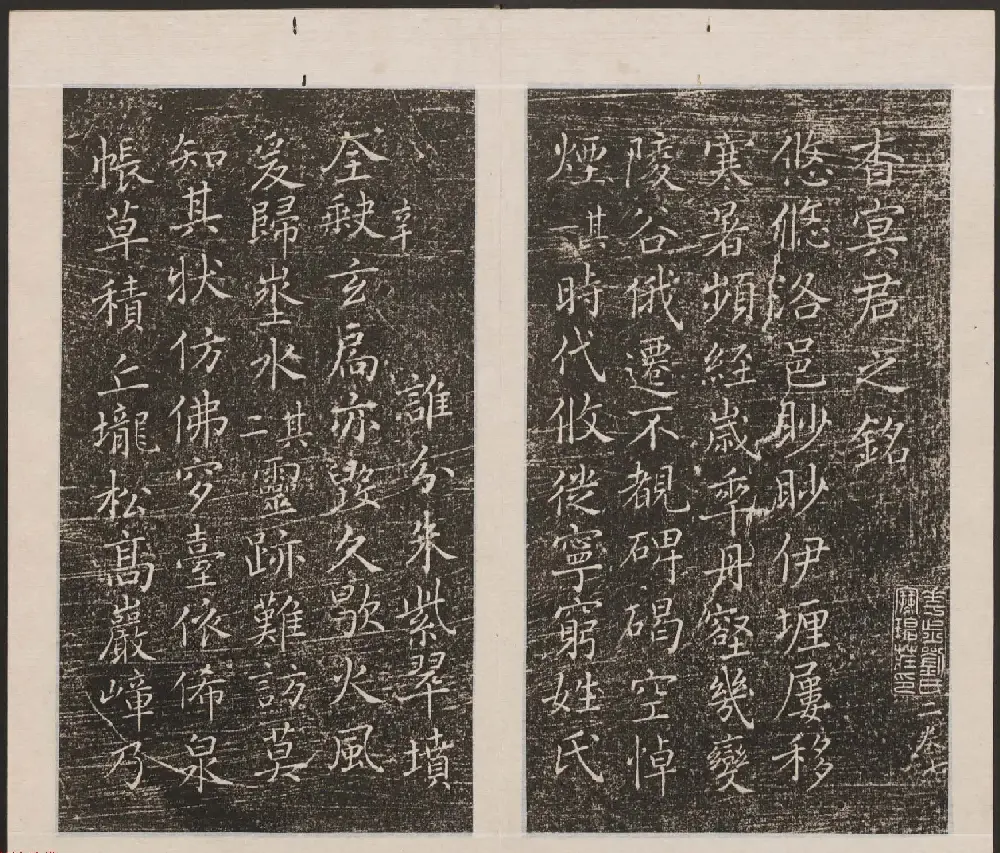 杳冥君之銘
悠悠洛邑眇眇伊壥屢移
寒暑頻經歲年丹壑幾變
陵谷俄遷不覩碑碣空悼
煙其一時代攸徙寧窮姓氏
誰分朱紫翠墳
全缺玄扃亦毀久歇火風
爰歸埊水其二靈跡難訪莫
知其狀仿佛夕臺依俙泉
帳草積丘壠松高巖嶂乃